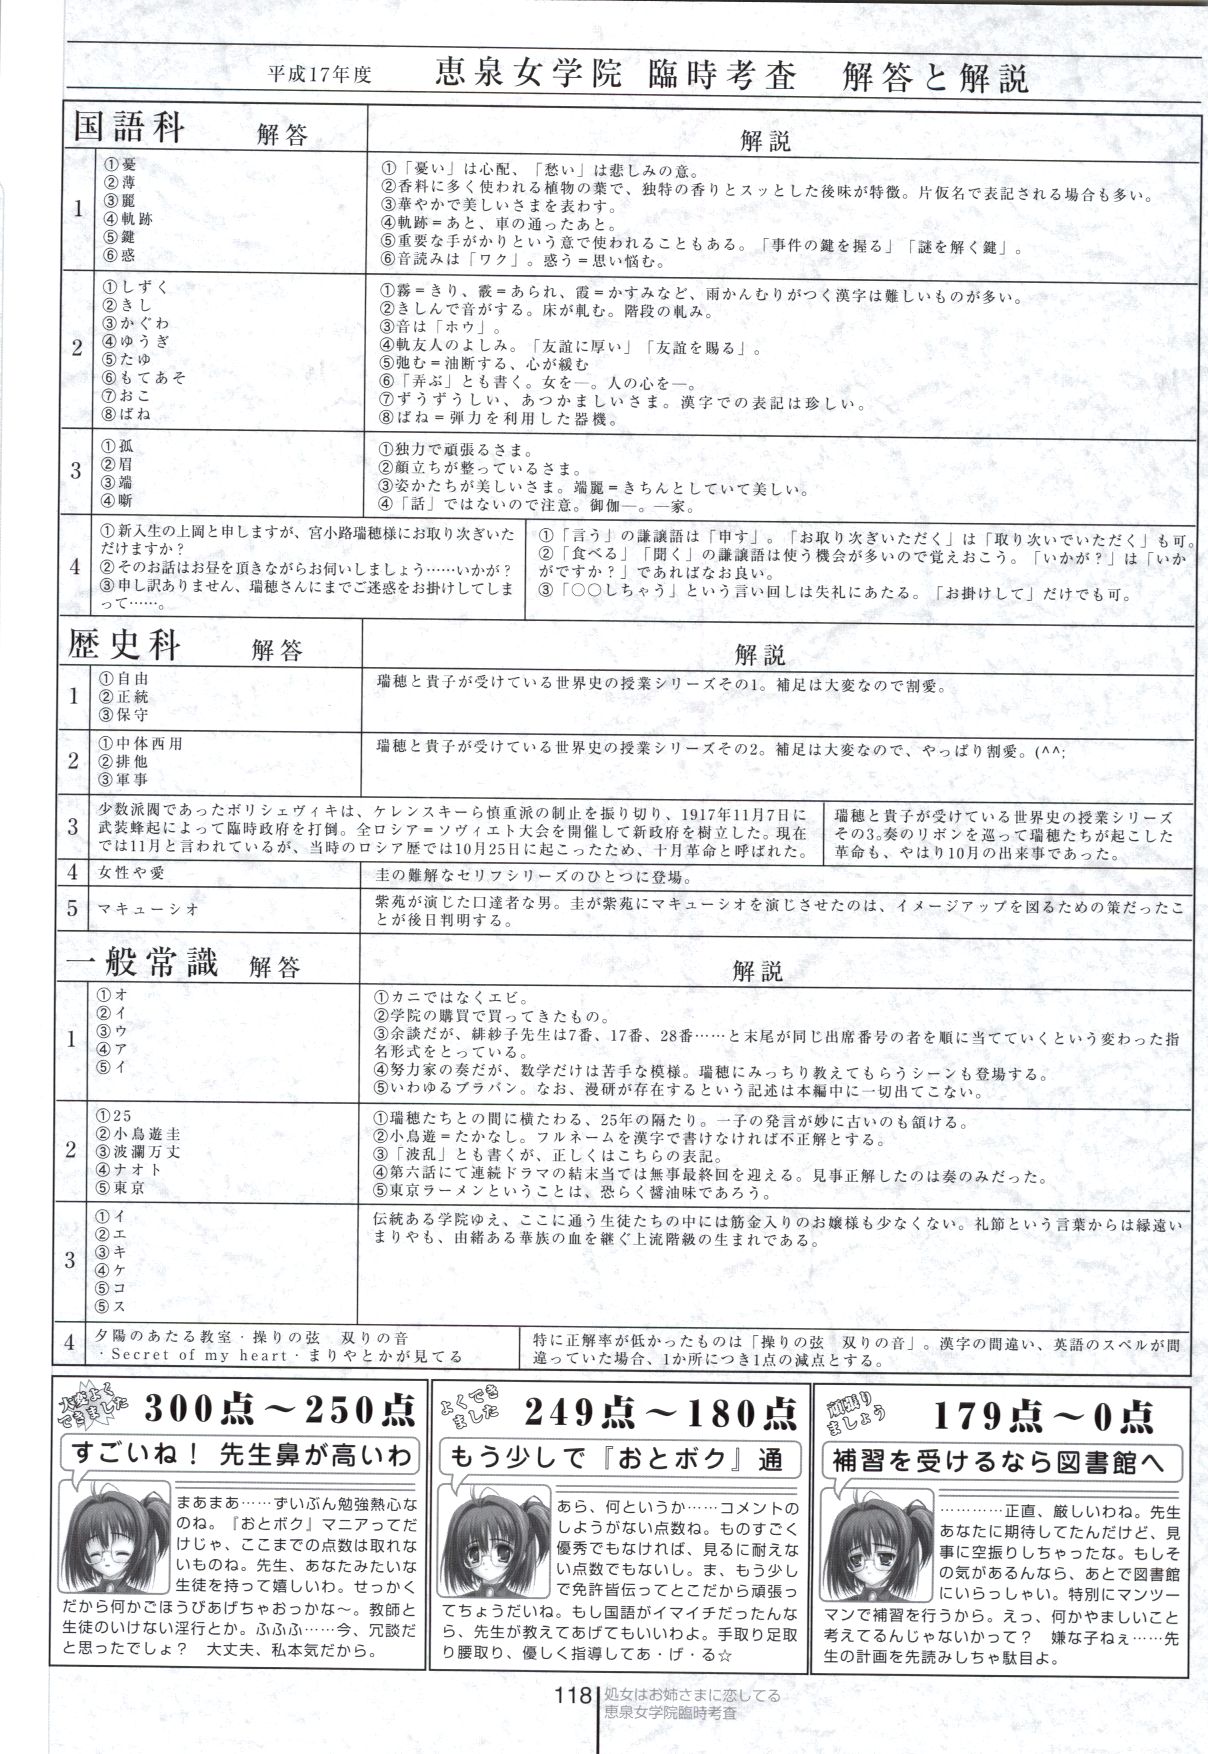 平成17年度　恵泉女学院 臨時考査　解答と解説
国語科　解答
解説
1
①憂
②薄
③麗
④軌跡
⑤鍵
⑥惑
①「憂い」は心配、「愁い」は悲しみの意。
②香料に多く使われる植物の葉で、独特の香りとスッとした後味が特徴。片仮名で表記される場合も多い。
③華やかで美しいさまを表わす。
④軌跡＝あと、車の通ったあと。
⑤重要な手がかりという意で使われることもある。「事件の鍵を握る」「謎を解く鍵」。
⑥音読みは「ワク」。惑う＝思い悩む。
2
①しずく
②きし
③かぐわ
④ゆうぎ
⑤たゆ
⑥もてあそ
⑦おこ
⑧ばね
①霧＝きり、霰＝あられ、霞＝かすみなど、雨かんむりがつく漢字は難しいものが多い。
②きしんで音がする。床が軋む。階段の軋み。
③音は「ホウ」。
④軌友人のよしみ。「友誼に厚い」「友誼を賜る」。
⑤弛む＝油断する、心が緩む
⑥「弄ぶ」とも書く。女を―。人の心を―。
⑦ずうずうしい、あつかましいさま。漢字での表記は珍しい。
⑧ばね＝弾力を利用した器機。
3
①孤
②眉
③端
④噺
①独力で頑張るさま。
②顔立ちが整っているさま。
③姿かたちが美しいさま。端麗＝きちんとしていて美しい。
④「話」ではないので注意。御伽―。―家。
4
①新入生の上岡と申しますが、宮小路瑞穂様にお取り次ぎいた
だけますか？
②そのお話はお昼を頂きながらお伺いしましょう……いかが？
③申し訳ありません、瑞穂さんにまでご迷惑をお掛けしてしま
って……。
①「言う」の謙譲語は「申す」。「お取り次ぎいただく」は「取り次いでいただく」も可。
②「食べる」「聞く」の謙譲語は使う機会が多いので覚えおこう。「いかが？」は「いか
がですか？」であればなお良い。
③「○○しちゃう」という言い回しは失礼にあたる。「お掛けして」だけでも可。
歴史科　解答
解説
1
①自由
②正統
③保守
瑞穂と貴子が受けている世界史の授業シリーズその1。補足は大変なので割愛。
2
①中体西用
②排他
③軍事
瑞穂と貴子が受けている世界史の授業シリーズその2。補足は大変なので、やっぱり割愛。(^^;
3
少数派閥であったボリシェヴィキは、ケレンスキーら慎重派の制止を振り切り、1917年11月7日に
武装蜂起によって臨時政府を打倒。全ロシア＝ソヴィエト大会を開催して新政府を樹立した。現在
では11月と言われているが、当時のロシア歴では10月25日に起こったため、十月革命と呼ばれた。
瑞穂と貴子が受けている世界史の授業シリーズ
その3。奏のリボンを巡って瑞穂たちが起こした
革命も、やはり10月の出来事であった。
4
女性や愛
圭の難解なセリフシリーズのひとつに登場。
5
マキューシオ
紫苑が演じた口達者な男。圭が紫苑にマキューシオを演じさせたのは、イメージアップを図るための策だったこ
とが後日判明する。
一般常識　解答
解説
1
①オ
②イ
③ウ
④ア
⑤イ
①カニではなくエビ。
②学院の購買で買ってきたもの。
③余談だが、緋紗子先生は7番、17番、28番……と末尾が同じ出席番号の者を順に当てていくという変わった指
名形式をとっている。
④努力家の奏だが、数学だけは苦手な模様。瑞穂にみっちり教えてもらうシーンも登場する。
⑤いわゆるブラバン。なお、漫研が存在するという記述は本編中に一切出てこない。
2
①25
②小鳥遊圭
③波瀾万丈
④ナオト
⑤東京
①瑞穂たちとの間に横たわる、25年の隔たり。一子の発言が妙に古いのも頷ける。
②小鳥遊＝たかなし。フルネームを漢字で書けなければ不正解とする。
③「波乱」とも書くが、正しくはこちらの表記。
④第六話にて連続ドラマの結末当ては無事最終回を迎える。見事正解したのは奏のみだった。
⑤東京ラーメンということは、恐らく醤油味であろう。
3
①イ
②エ
③キ
④ケ
⑤コ
⑤ス
伝統ある学院ゆえ、ここに通う生徒たちの中には筋金入りのお嬢様も少なくない。礼節という言葉からは縁遠い
まりやも、由緒ある華族の血を継ぐ上流階級の生まれである。
4
夕陽のあたる教室・操りの弦　双りの音
・Secret of my heart・まりやとかが見てる
特に正解率が低かったものは「操りの弦　双りの音」。漢字の間違い、英語のスペルが間
違っていた場合、1か所につき1点の減点とする。
大変よく
できました
300点～250点
すごいね！ 先生鼻が高いわ
まあまあ……ずいぶん勉強熱心な
のね。『おとボク』マニアってだ
けじゃ、ここまでの点数は取れな
いものね。先生、あなたみたいな
生徒を持って嬉しいわ。せっかく
だから何かごほうびあげちゃおっかな～。教師と
生徒のいけない淫行とか。ふふふ……今、冗談だ
と思ったでしょ？　大丈夫、私本気だから。
よくでき
ました
249点～180点
もう少しで『おとボク』通
あら、何というか……コメントの
しようがない点数ね。ものすごく
優秀でもなければ、見るに耐えな
い点数でもないし。ま、もう少し
で免許皆伝ってとこだから頑張っ
てちょうだいね。もし国語がイマイチだったんな
ら、先生が教えてあげてもいいわよ。手取り足取
り腰取り、優しく指導してあ・げ・る☆
頑張り
ましょう
179点～0点
補習を受けるなら図書館へ
…………正直、厳しいわね。先生
あなたに期待してたんだけど、見
事に空振りしちゃったな。もしそ
の気があるんなら、あとで図書館
にいらっしゃい。特別にマンツー
マンで補習を行うから。えっ、何かやましいこと
考えてるんじゃないかって？　嫌な子ねぇ……先
生の計画を先読みしちゃ駄目よ。
118
処女はお姉さまに恋してる
恵泉女学院臨時考査